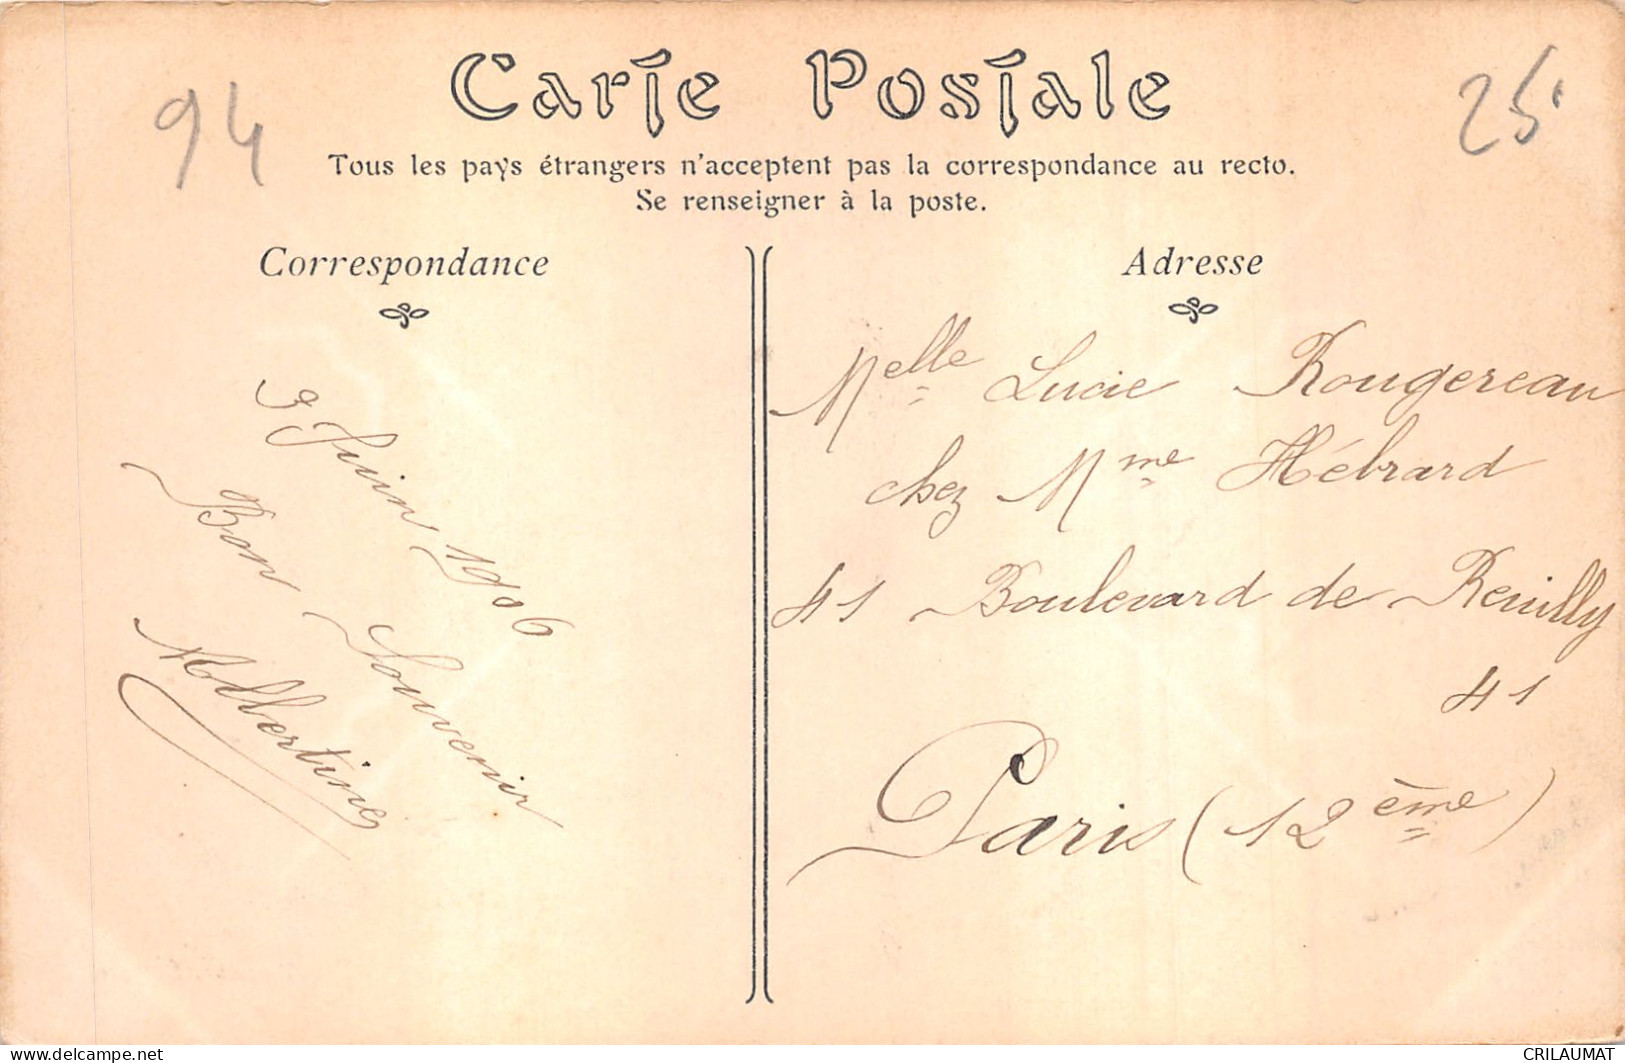 94
25
Carte Postale
Tous les pays étrangers n'acceptent pas la correspondance au recto.
Se renseigner à la poste.
Correspondance
9 Juin 1906
Bon Souvenir
Albertine
Adresse
Melle Lucie Rougereau
chez Mme Hébrard
41 Boulevard de Reuilly
41
Paris (12ème)
www.delcampe.net
CRILAUMAT